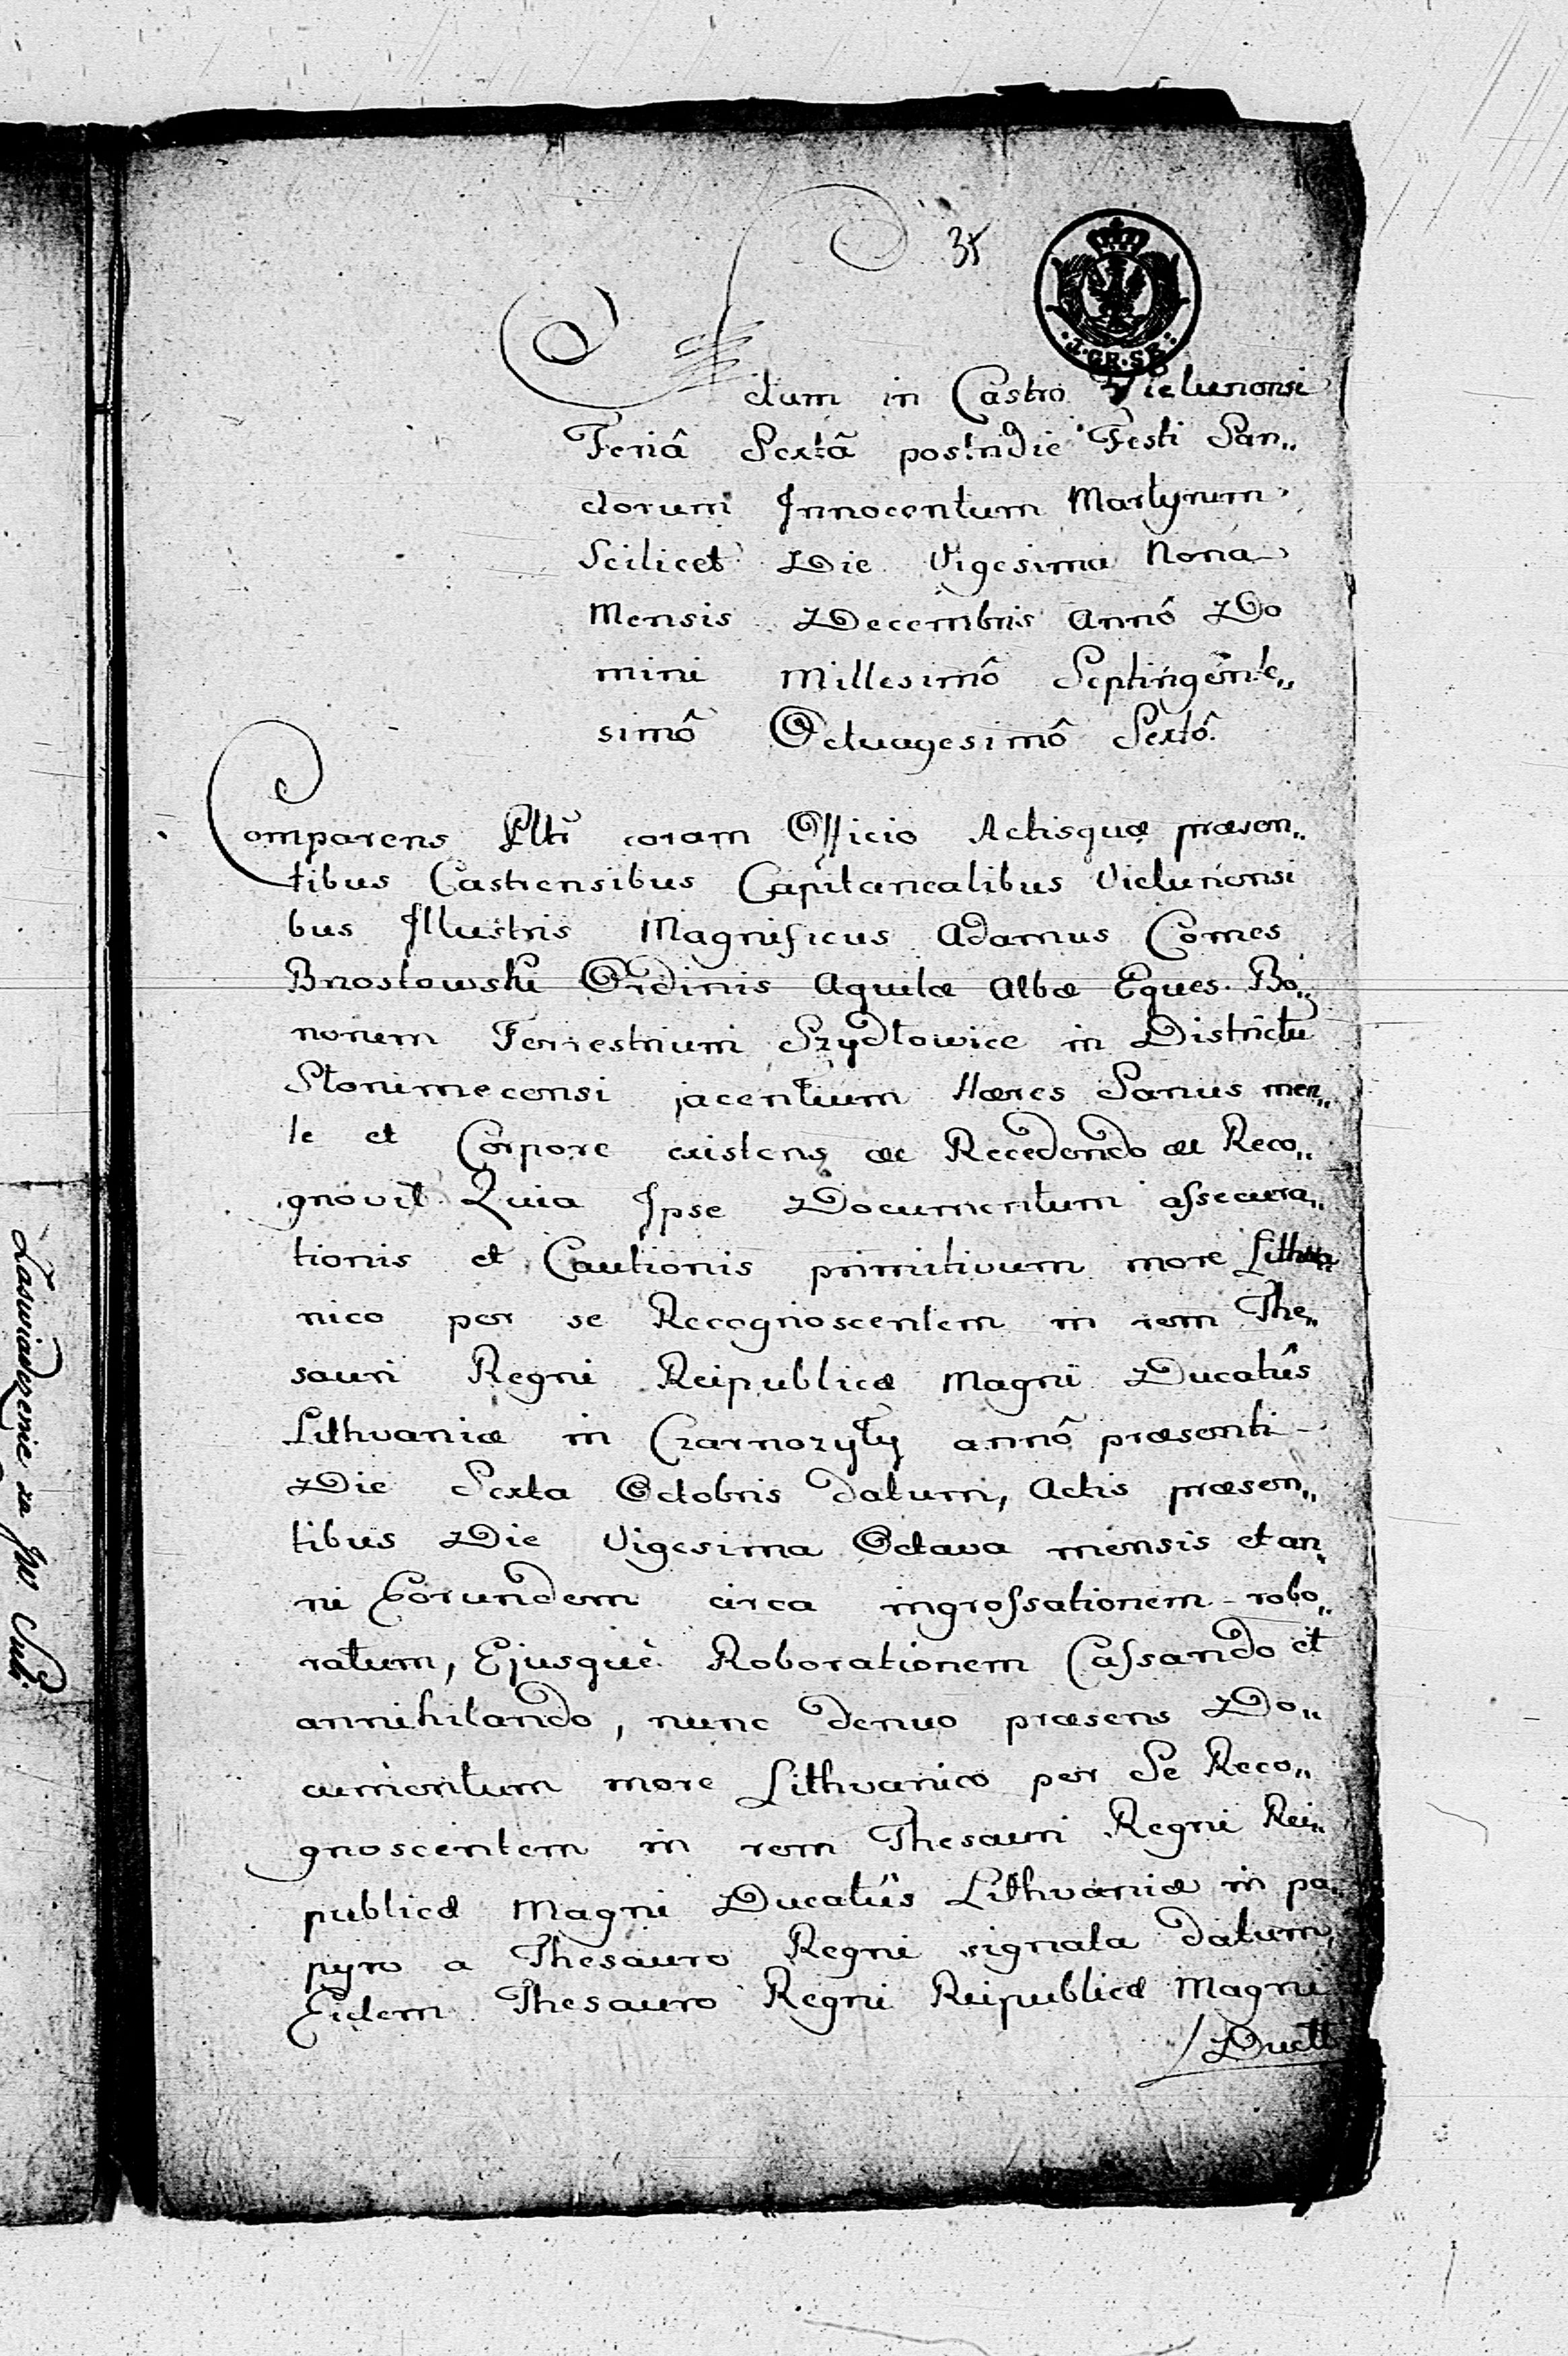 35
J.GR.S8:
Actum in Castro Vielunensi
Feriâ Sextâ postridie Festi San„
ctorum Innocentum Martyrum
Scilicet Die Vigesima Nona
Mensis Decembris Annô Do
mini Millesimô Septingente„
simô Octuagesimô Sextô.
Comparens Pltr coram Officio Actisquæ præsen„
tibus Castrensibus Capitanealibus Vielunensi
bus Illustris Magnificus Adamus Comes
Brzostowski Ordinis Aquilæ Albæ Eques Bo„
norum Terrestrium Szydłowice in Districtu
Słonimecensi jacentium Hæres Sanus men„
te et Corpore existens ac Recedendo ac Reco„
gnovit Quia Ipse Documentum assecura„
tionis et Cautionis primitivum more Lithva„
nico per se Recognoscentem in rem The„
sauri Regni Reipublicæ Magni Ducatûs
Lithvaniæ in Czarnożyły annô præsenti
Die Sexta Octobris datum, Actis præsen„
tibus Die Vigesima Octava mensis et an„
ni Eorundem circa ingrossationem robo„
ratum, Ejusquè Roborationem Cassando et
annihilando, nunc denuo præsens Do„
cumentum more Lithvanico per Se Reco„
gnoscentem in rem Thesauri Regni Rei„
publicæ Magni Ducatûs Lithvaniæ in pa„
pyro a Thesauro Regni signata datum,
Eidem Thesauro Regni Reipublicæ Magni
Ductt
Zaswiadczenie za JW.